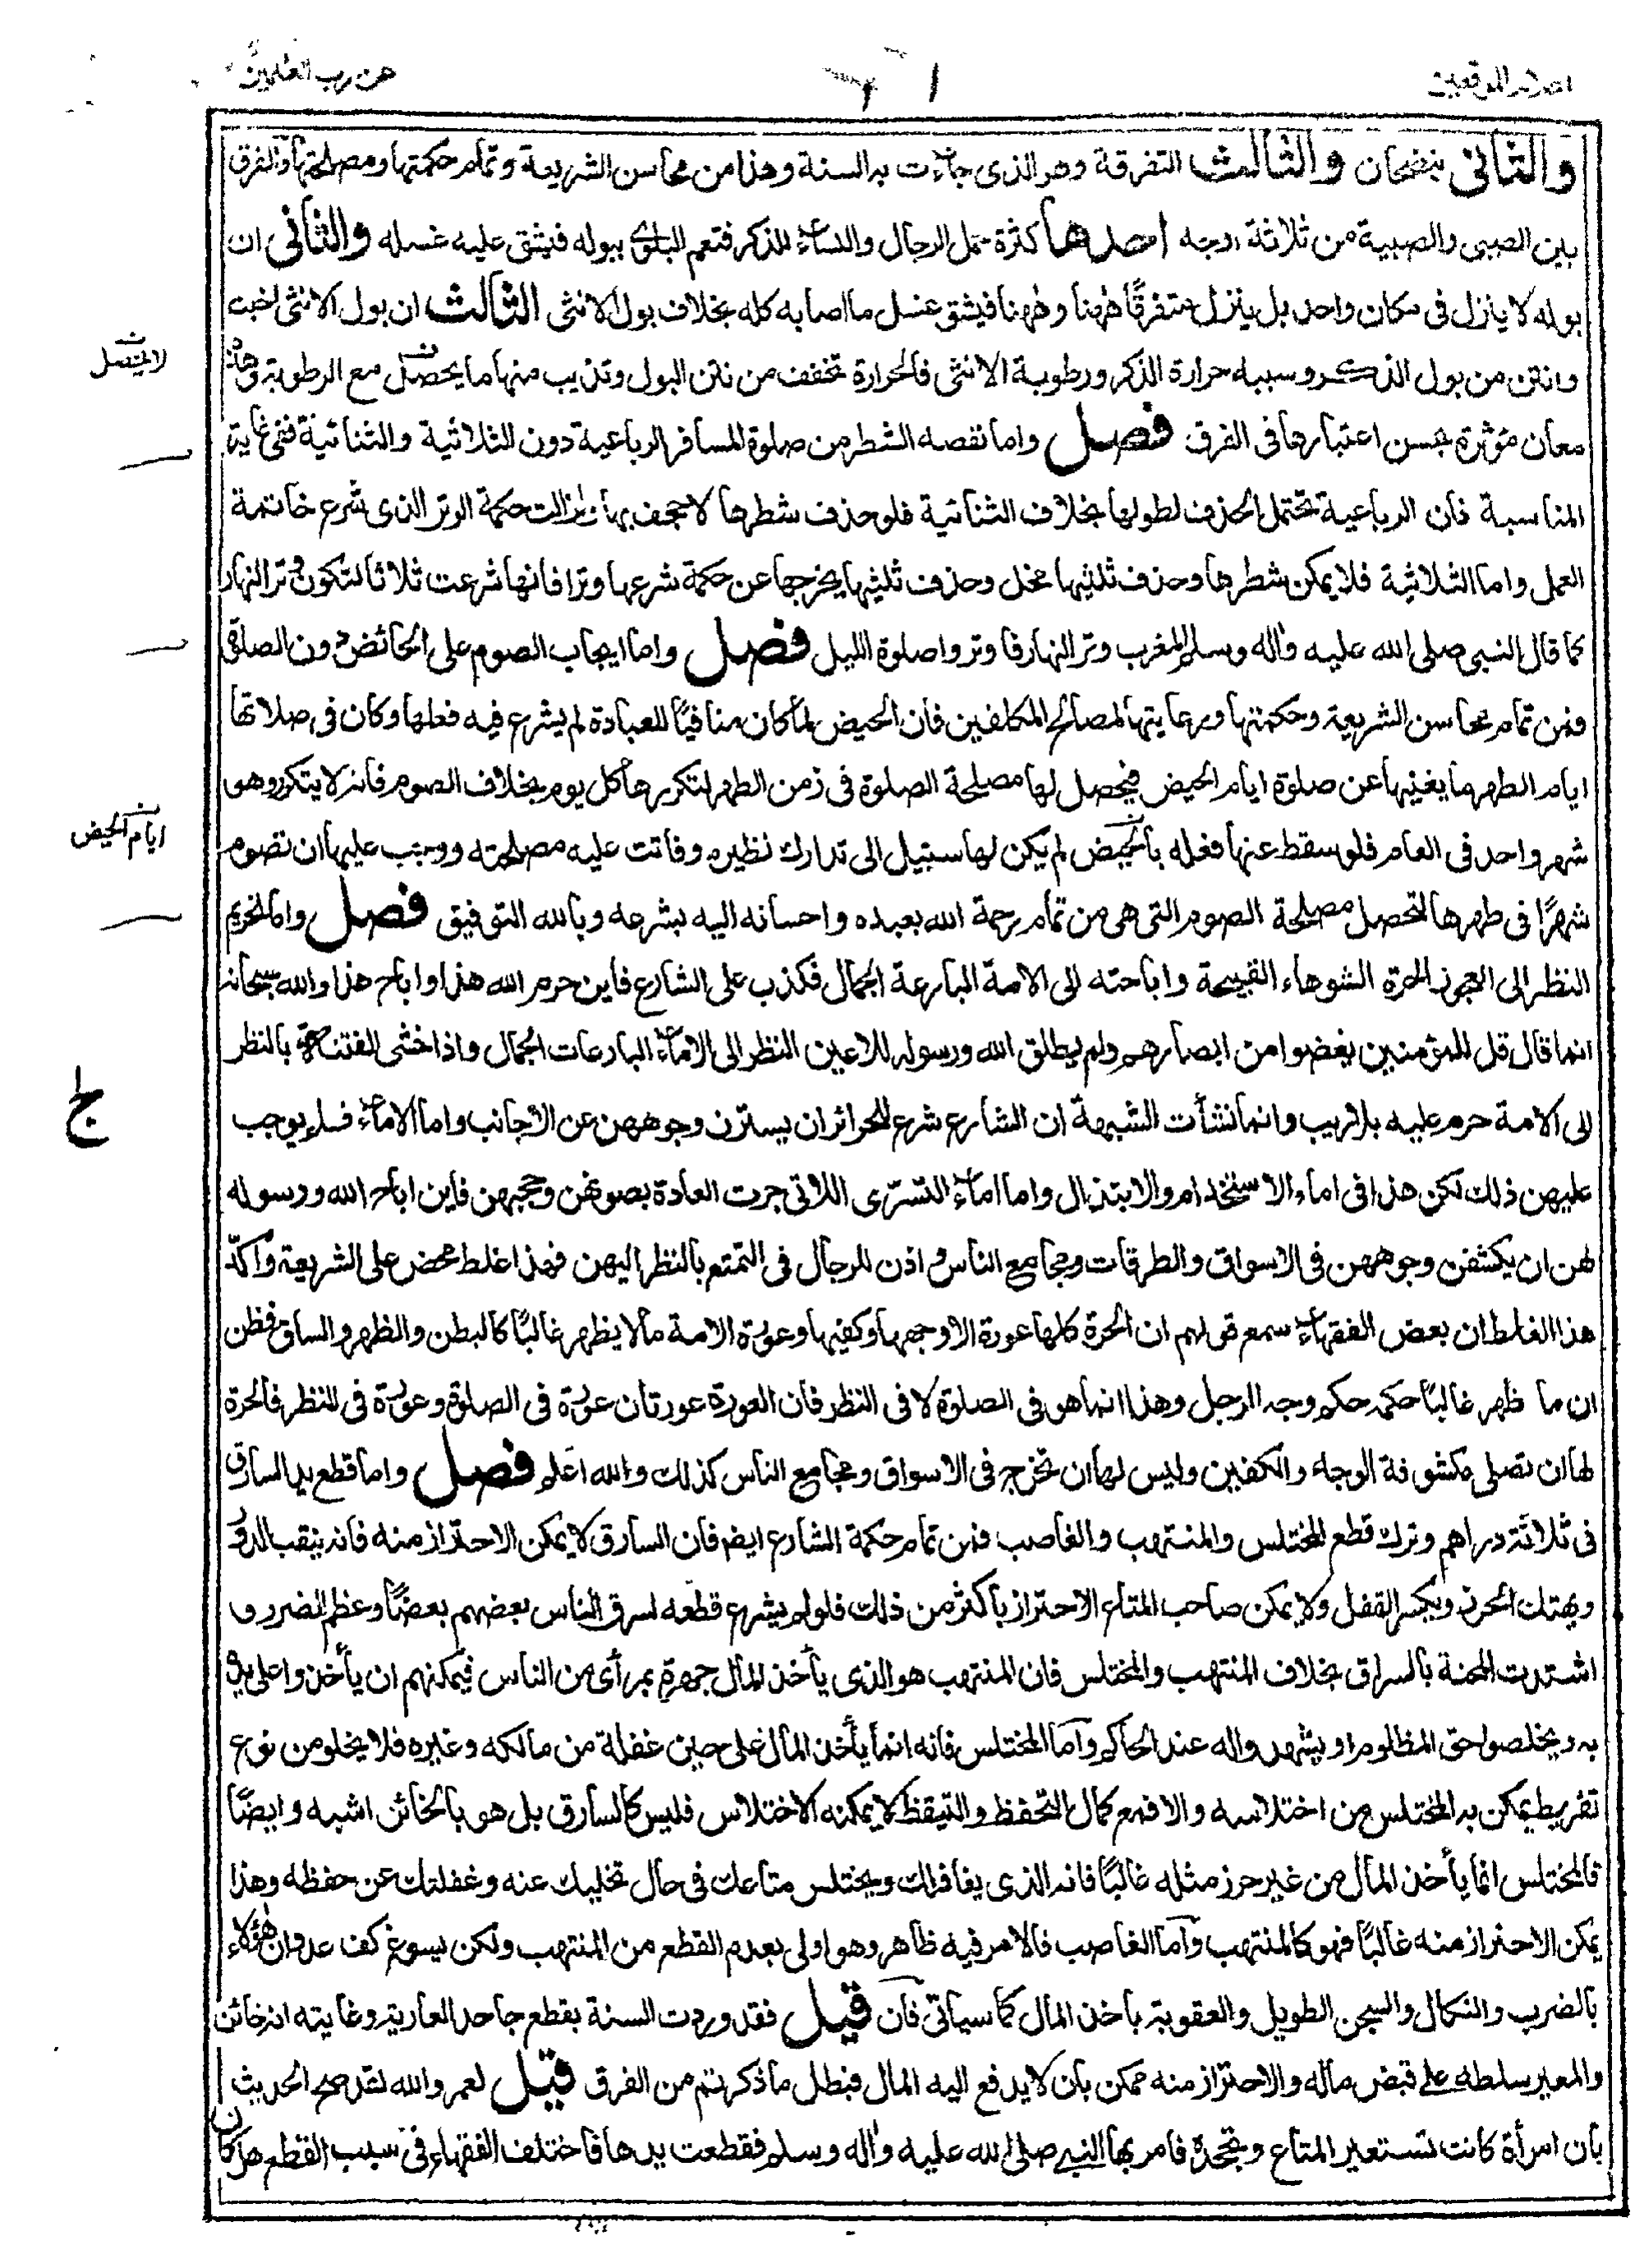 اعلام الموقعين
عن رب العلمين
والثانى ينضحان والثالث التفرقة وهو الذى جاءت به السنة وهذا من محاسن الشريعة وتمام حكمتها ومصلحتها والفرق
بين الصبى والصبية من ثلاثة اوجه احدها كثرة حمل الرجال والنساء للذكر فتعم البلوى ببوله فيشق عليه غسله والثانى ان
بوله لا ينزل فى مكان واحد بل ينزل متفرقًا ههنا وههنا فيشق غسل ما اصابه كله بخلاف بول الانثى الثالث ان بول الانثى اخبث
وانتن من بول الذكر وسببه حرارة الذكر ورطوبة الانثى فالحرارة تخفف من نتن البول وتذيب منها ما يحصل مع الرطوبة وهذه
لا يحصل
معان مؤثرة يحسن اعتبارها فى الفرق فصل واما نقصه الشطر من صلوة المسافر الرباعية دون الثلاثية والثنائية ففى غاية
المناسبة فان الرباعية تحتمل الحذف لطولها بخلاف الثنائية فلو حذف شطرها لاجحف بها ولزالت حكمة الوتر الذى شرع خاتمة
العمل واما الثلاثية فلا يمكن شطرها وحذف ثلثيها مخل وحذف ثلثها يخرجها عن حكمة شرعها وترا فانها شرعت ثلاثا لتكون وتر النهار
كما قال النبى صلى الله عليه واله وسلم المغرب وتر النهار فاوتروا صلوة الليل فصل واما ايجاب الصوم على الحائض دون الصلوة
فمن تمام محاسن الشريعة وحكمتها ورعايتها لمصالح المكلفين فان الحيض لما كان منافيًا للعبادة لم يشرع فيه فعلها وكان فى صلاتها
ايام الطهر ما يغنيها عن صلوة ايام الحيض فيحصل لها مصلحة الصلوة فى زمن الطهر لتكررها كل يوم بخلاف الصوم فانه لا يتكرر وهو
شهر واحد فى العام فلو سقط عنها فعله بالحيض لم يكن لها سبيل الى تدارك نظيره وفاتت عليه مصلحته ووجب عليها ان تصوم
ايام الحيض
شهرًا فى طهرها لتحصل مصلحة الصوم التى هى من تمام رحمة الله بعبده واحسانه اليه بشرعه وبالله التوفيق فصل واما تحريم
النظر الى العجوز الحرة الشوهاء القبيحة واباحته الى الامة البارعة الجمال فكذب على الشارع فاين حرم الله هذا واباح هذا والله سبحانه
انما قال قل للمؤمنين يغضوا من ابصارهم ولم يطلق الله ورسوله للاعين النظر الى الاماء البارعات الجمال واذا خشى الفتنة بالنظر
الى الامة حرم عليه بلا ريب وانما نشأت الشبهة ان الشارع شرع للحرائر ان يسترن وجوههن عن الاجانب واما الاماء فلم يوجب
عليهن ذلك لكن هذا فى اماء الاستخدام والابتذال واما اماء التسرّى اللاتى جرت العادة بصونهن وحجبهن فاين اباح الله ورسوله
لهن ان يكشفن وجوههن فى الاسواق والطرقات ومجامع الناس واذن للرجال فى التمتع بالنظر اليهن فهذا غلط محض على الشريعة واكدّ
هذا الغلط ان بعض الفقهاء سمع قولهم ان الحرة كلها عورة الا وجهها وكفيها وعورة الامة ما لا يظهر غالبًا كالبطن والظهر والساق فظن
ان ما ظهر غالبًا حكمه حكم وجه الرجل وهذا انما هو فى الصلوة لا فى النظر فان العورة عورتان عورة فى الصلوة وعورة فى النظر فالحرة
لها ان تصلى مكشوفة الوجه والكفين وليس لها ان تخرج فى الاسواق ومجامع الناس كذلك والله اعلم فصل واما قطع يد السارق
فى ثلاثة دراهم وترك قطع المختلس والمنتهب والغاصب فمن تمام حكمة الشارع ايضا فان السارق لا يمكن الاحتراز منه فانه ينقب الدور
ويهتك الحرز ويكسر القفل ولا يمكن صاحب المتاع الاحتراز باكثر من ذلك فلو لم يشرع قطعه لسرق الناس بعضهم بعضًا وعظم الضرر و
اشتدت المحنة بالسراق بخلاف المنتهب والمختلس فان المنتهب هو الذى يأخذ المال جهرة بمرأى من الناس فيمكنهم ان يأخذوا على يد
يه ويخلصوا حق المظلوم او يشهدوا له عند الحاكم واما المختلس فانه انما يأخذ المال على حين غفلة من مالكه وغيره فلا يخلو من نوع
تفريط يمكن به المختلس من اختلاسه والا فمع كمال التحفظ والتيقظ لا يمكنه الاختلاس فليس كالسارق بل هو بالخائن اشبه وايضًا
فالمختلس انما يأخذ المال من غير حرز مثله غالبًا فانه الذى يغافلك ويختلس متاعك فى حال تخليك عنه وغفلتك عن حفظه وهذا
يمكن الاحتراز منه غالبًا فهو كالمنتهب واما الغاصب فالامر فيه ظاهر وهو اولى بعدم القطع من المنتهب ولكن يسوغ كف عدوان هؤلاء
بالضرب والنكال والسجن الطويل والعقوبة باخذ المال كما سياتى فان قيل فقد وردت السنة بقطع جاحد العارية وغايته انه خائن
والمعير سلطه على قبض ماله والاحتراز منه ممكن بان لا يدفع اليه المال فبطل ما ذكرتم من الفرق قيل لعمر والله لقد صح الحديث
بان امرأة كانت تستعير المتاع وتجحده فامر بها النبى صلى الله عليه واله وسلم فقطعت يدها فاختلف الفقهاء فى سبب القطع هل كان